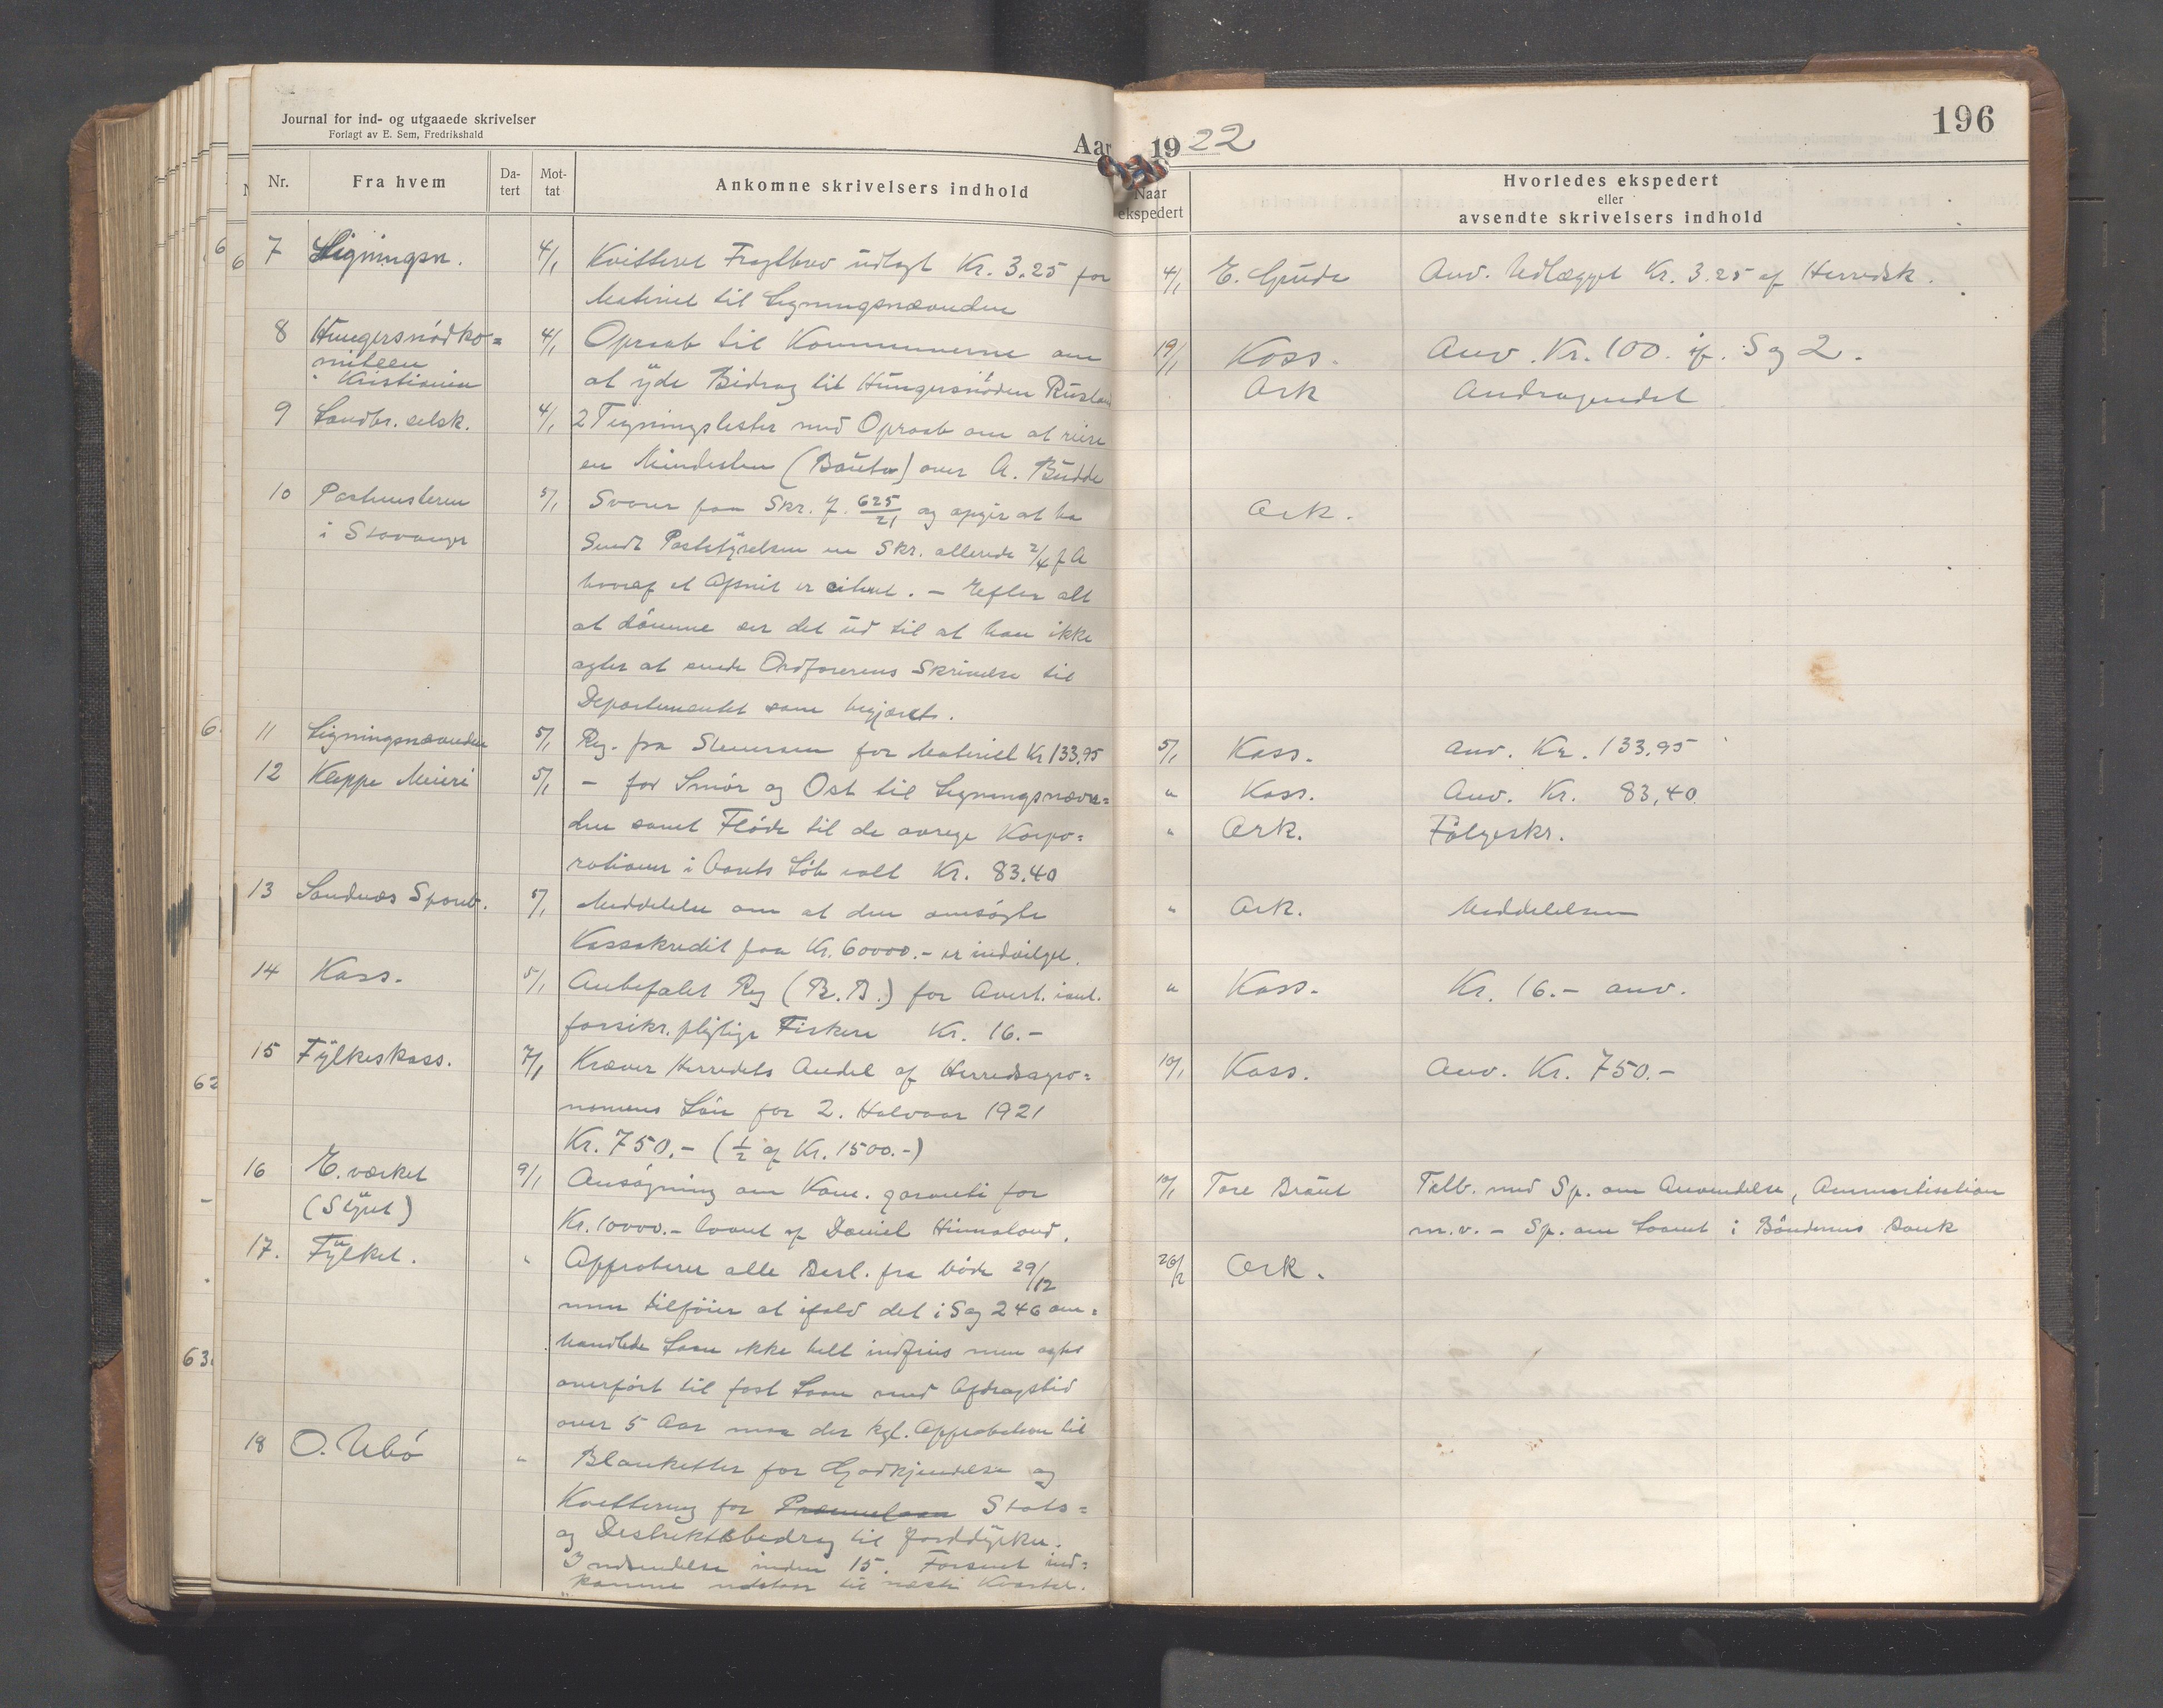 Journal for ind- og utgaaede skrivelser
Forlagt av E. Sem, Fredrikshald
Aar 1922
196
Nr.
Fra hvem
Da-
tert
Mot-
tat
Ankomne skrivelsers indhold
Naar
ekspedert
Hvorledes ekspedert
eller
avsendte skrivelsers indhold
7 Ligningsn. 4/1 Kvitteret Fragtbrev udlagt Kr. 3.25 for
Materiel til Ligningsnævnden
4/1 E. Gjude Anv. Udlægget Kr. 3.25 af Herredsk.
8 Hungersnødko=
miteen
Kristiania
4/1 Opraab til Kommunerne om
at yde Bidrag til Hungersnøden i Rusland
19/1 Kass. Anv. Kr. 100. if. Sag 2.
Ark Andragendet
9 Landbr. selsk. 4/1 2 Tegningslister med Opraab om at reise
en Mindesten (Bauta) over A. Budde
10 Postmesteren
i Stavanger
5/1 Svarer paa Skr. J. 625/21 og opgir at ha
Sendt Poststyrelsen en Skr. allerede 2/4 f A
hvoraf et Afsnit er citeret. - Efter alt
at dömme ser det ud til at han ikke
agter at sende Ordførerens Skrivelse til
Departementet som begjæret.
Ark.
11 Ligningsnævnden 5/1 Reg. fra Stenersen for Materiel Kr 133.95
5/1 Kass. anv. Kr. 133.95
12 Kleppe Meieri 5/1 - for Smör og Ost til Ligningsnævn=
den samt Flöde til de øvrige Korpo=
rationer i Aarets Löb ialt Kr. 83.40
" Kass. Anv. Kr. 83,40
" Ark. Fölgeskr.
13 Sandnæs Spareb. 5/1 Meddelelse om at den ansögte
Kassakredit paa Kr. 60000.- er indvilget.
" Ark. Meddelelsen
14 Kass. 5/1 Anbefalet Reg (B. B.) for Avert. iaml.
forsikr. pligtige Fiskere Kr. 16.-
" Kass. Kr. 16.- anv.
15 Fylkeskass. 7/1 Kræver Herredets Andel af Herredsagro=
nomens Lön for 2. Halvaar 1921
Kr. 750.- (1/2 af Kr. 1500.-)
10/1 Kass. Anv. Kr. 750.-
16 E. verket
(Styret)
9/1 Ansøgning om Kom. garanti for
Kr. 10000.- laant af Daniel Hinnaland.
10/1 Tore Braut Tilb. med Sp. om Anvendelse, Ammortisation
m.v. - Sp. om Laanet i Böndernes Bank
17. Fylket. " Approberer alle Besl. fra Møde 29/12
men tilföier at ifald det i Sag 246 om=
handlede Laan ikke helt indfries men agtes
overført til fast Laan med Afdragstid
over 5 Aar maa der kgl. Approbation til
26/2 Ark.
18 O. Ubö " Blanketter for Godkjendelse og
Kvittering for Præmielaan Stats=
og Destriktsbidrag til Jorddyrkn.
Indsendelse inden 15. Forsent ind=
komne udstaar til næste Kvartal.